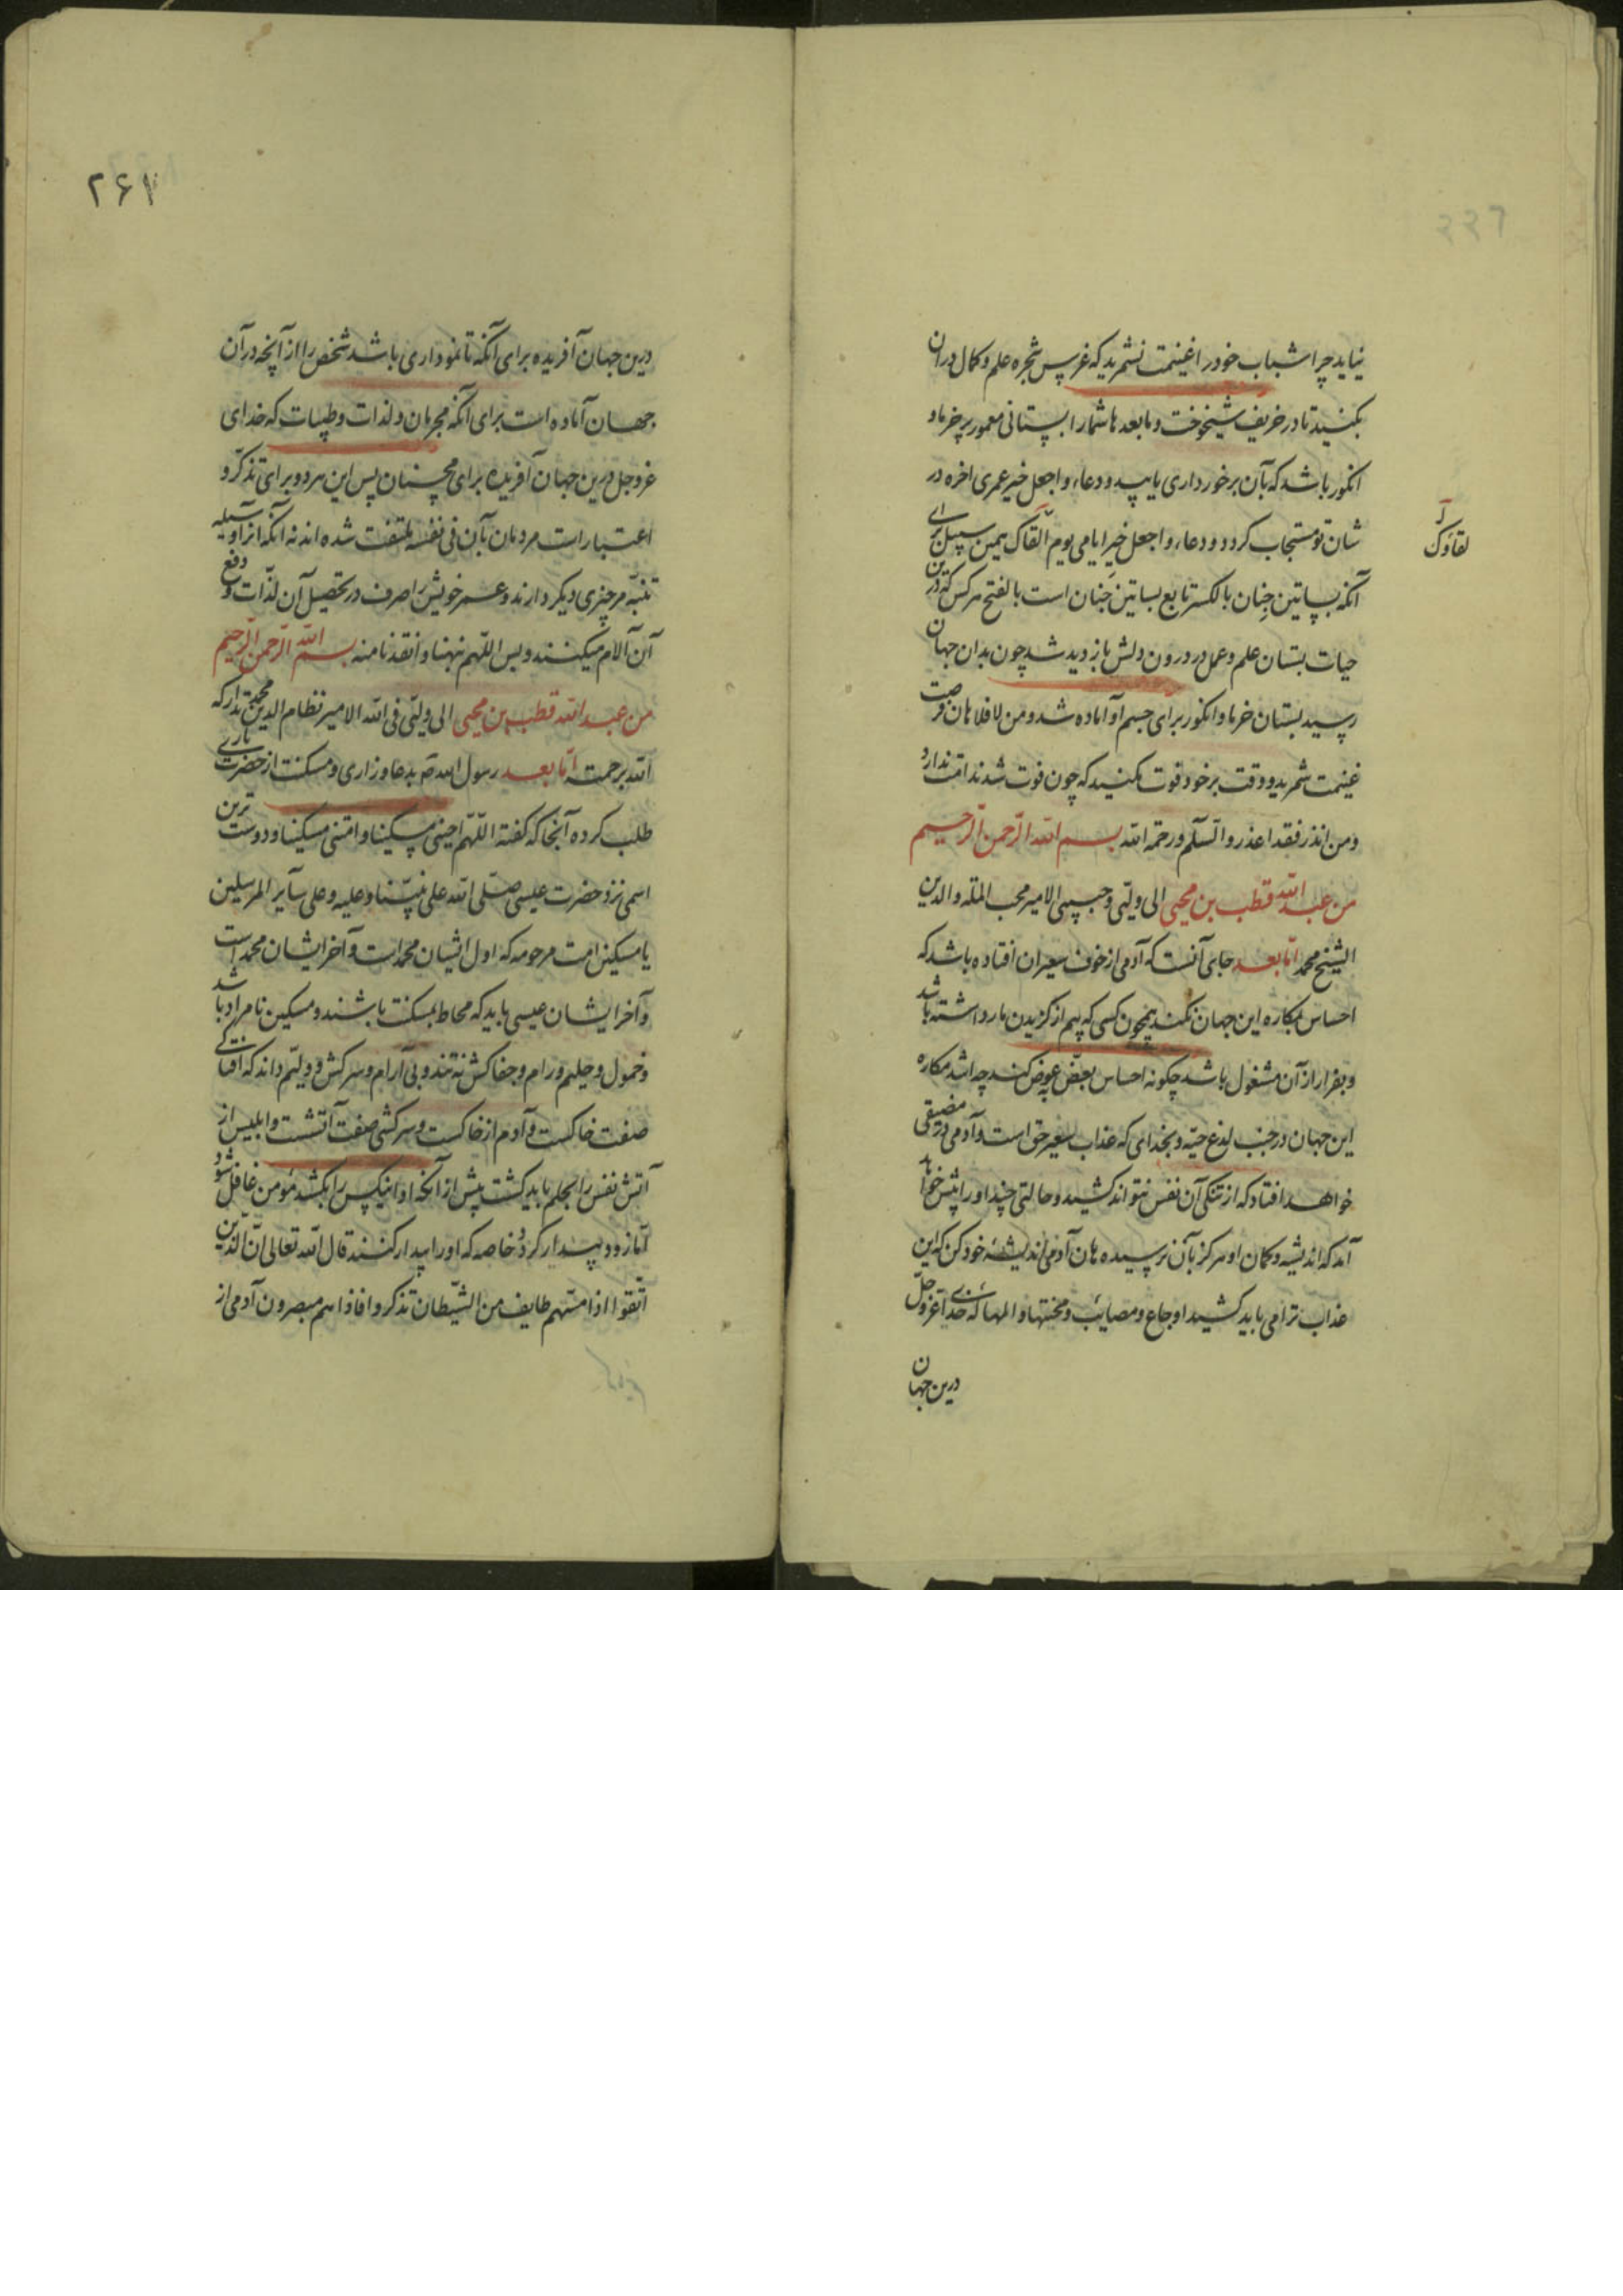 نیاید چرا شباب خود را غنیمت نشمرید که غرس شجره علم و کمال در ان
بکنید تا در خریف شیخوخت و ما بعدها شما را بستانی معمور پر خرما و
انکور باشد که بآن برخورداری یابید و دعاء و اجعل خیر عمری اخره در
شان تو مستجاب کردد و دعاء و اجعل خیر ایامی یوم القاک بهمین سبیل برای
لقاؤک
آنکه بساتین جنان بالکسر تابع بساتین جنان است بالفتح هر کس که درین
حیات بستان علم و عمل در درون دلش بازدید شد چون بدان جهان
رسید بستان خرما و انکور برای جسم او آماده شد و من لا فلا هان فرصت
غنیمت شمرید و وقت بر خود فوت مکنید که چون فوت شد ندامت ندارد
و من انذر فقد اعذر والسلم و رحمة الله بسم الله الرحمن الرحیم
من عبد الله قطب بن محیی الی ولیی و حبیبی الامیر محب الملة والدین
الشیخ محمد اما بعد جای آنست که آدمی از خوف سعیران افتاده باشد که
احساس بمکاره این جهان نکند همچون کسی که بیم از کزیدن مار داشته باشد
و بفرار از آن مشغول باشد چکونه احساس بعض بعوض کند چه اشد مکاره
این جهان در جنب لدغ حیه و بخدای که عذاب سعیر حق است و آدمی در مضیقی
خواهد افتاد که از تنکی آن نفس نتواند کشید و حالتی چند او را پیش خواهد
آمد که اندیشه و کمان او هرکز بآن نرسیده هان آدمی اندیشهٔ خود کن که این
عذاب ترا می باید کشید اوجاع و مصائب و محنتها و المها که خدای عز و جل
درین جهان
۲۶۱
درین جهان آفریده برای آنکه تا نموداری باشد شخص را از آنچه در آن
جهان آماده است برای آنکه مجرمان و لذات و طیبات که خدای
عز و جل درین جهان آفریده برای همچنان پس این هر دو برای تذکر و
اعتبار است مردمان بآن فی نفسه ملتفت شده اند نه آنکه انرا وسیله
تنبه مر چیزی دیکر دارند و عمر خویش را صرف در تحصیل آن لذات و دفع
آن آلام میکنند و بس اللهم نبهنا و انقذنا منه بسم الله الرحمن الرحیم
من عبد الله قطب بن محیی الی ولیی فی الله الامیر نظام الدین محمد تدارکه
الله برحمته اما بعد رسول الله ص بدعا و زاری و مسکنت از حضرت باری
طلب کرده آنجا که کفته اللهم احینی مسکینا و امتنی مسکینا و دوست ترین
اسمی نزد حضرت عیسی صلی الله علی نبینا و علیه و علی سآیر المرسلین
یا مسکین امت مرحومه که اول ایشان محمد است و آخر ایشان محمد است
و آخر ایشان عیسی باید که محاط بمسکنت باشند و مسکین نامراد باشد
و خمول و حلیم و رام و جفاکش نه تند و بی آرام و سرکش و ولیم داند که افتادکی
صفت خاکست و آدم از خاکست و سرکشی صفت آتشست و ابلیس از
آتش نفس را بحلم باید کشت پیش از آنکه او انیکس را بکشد مؤمن غافل شود
اما زود بیدار کردد خاصه که او را بیدار کنند قال الله تعالی ان الذین
اتقوا اذا مستهم طایف من الشیطان تذکروا فاذا هم مبصرون آدمی از